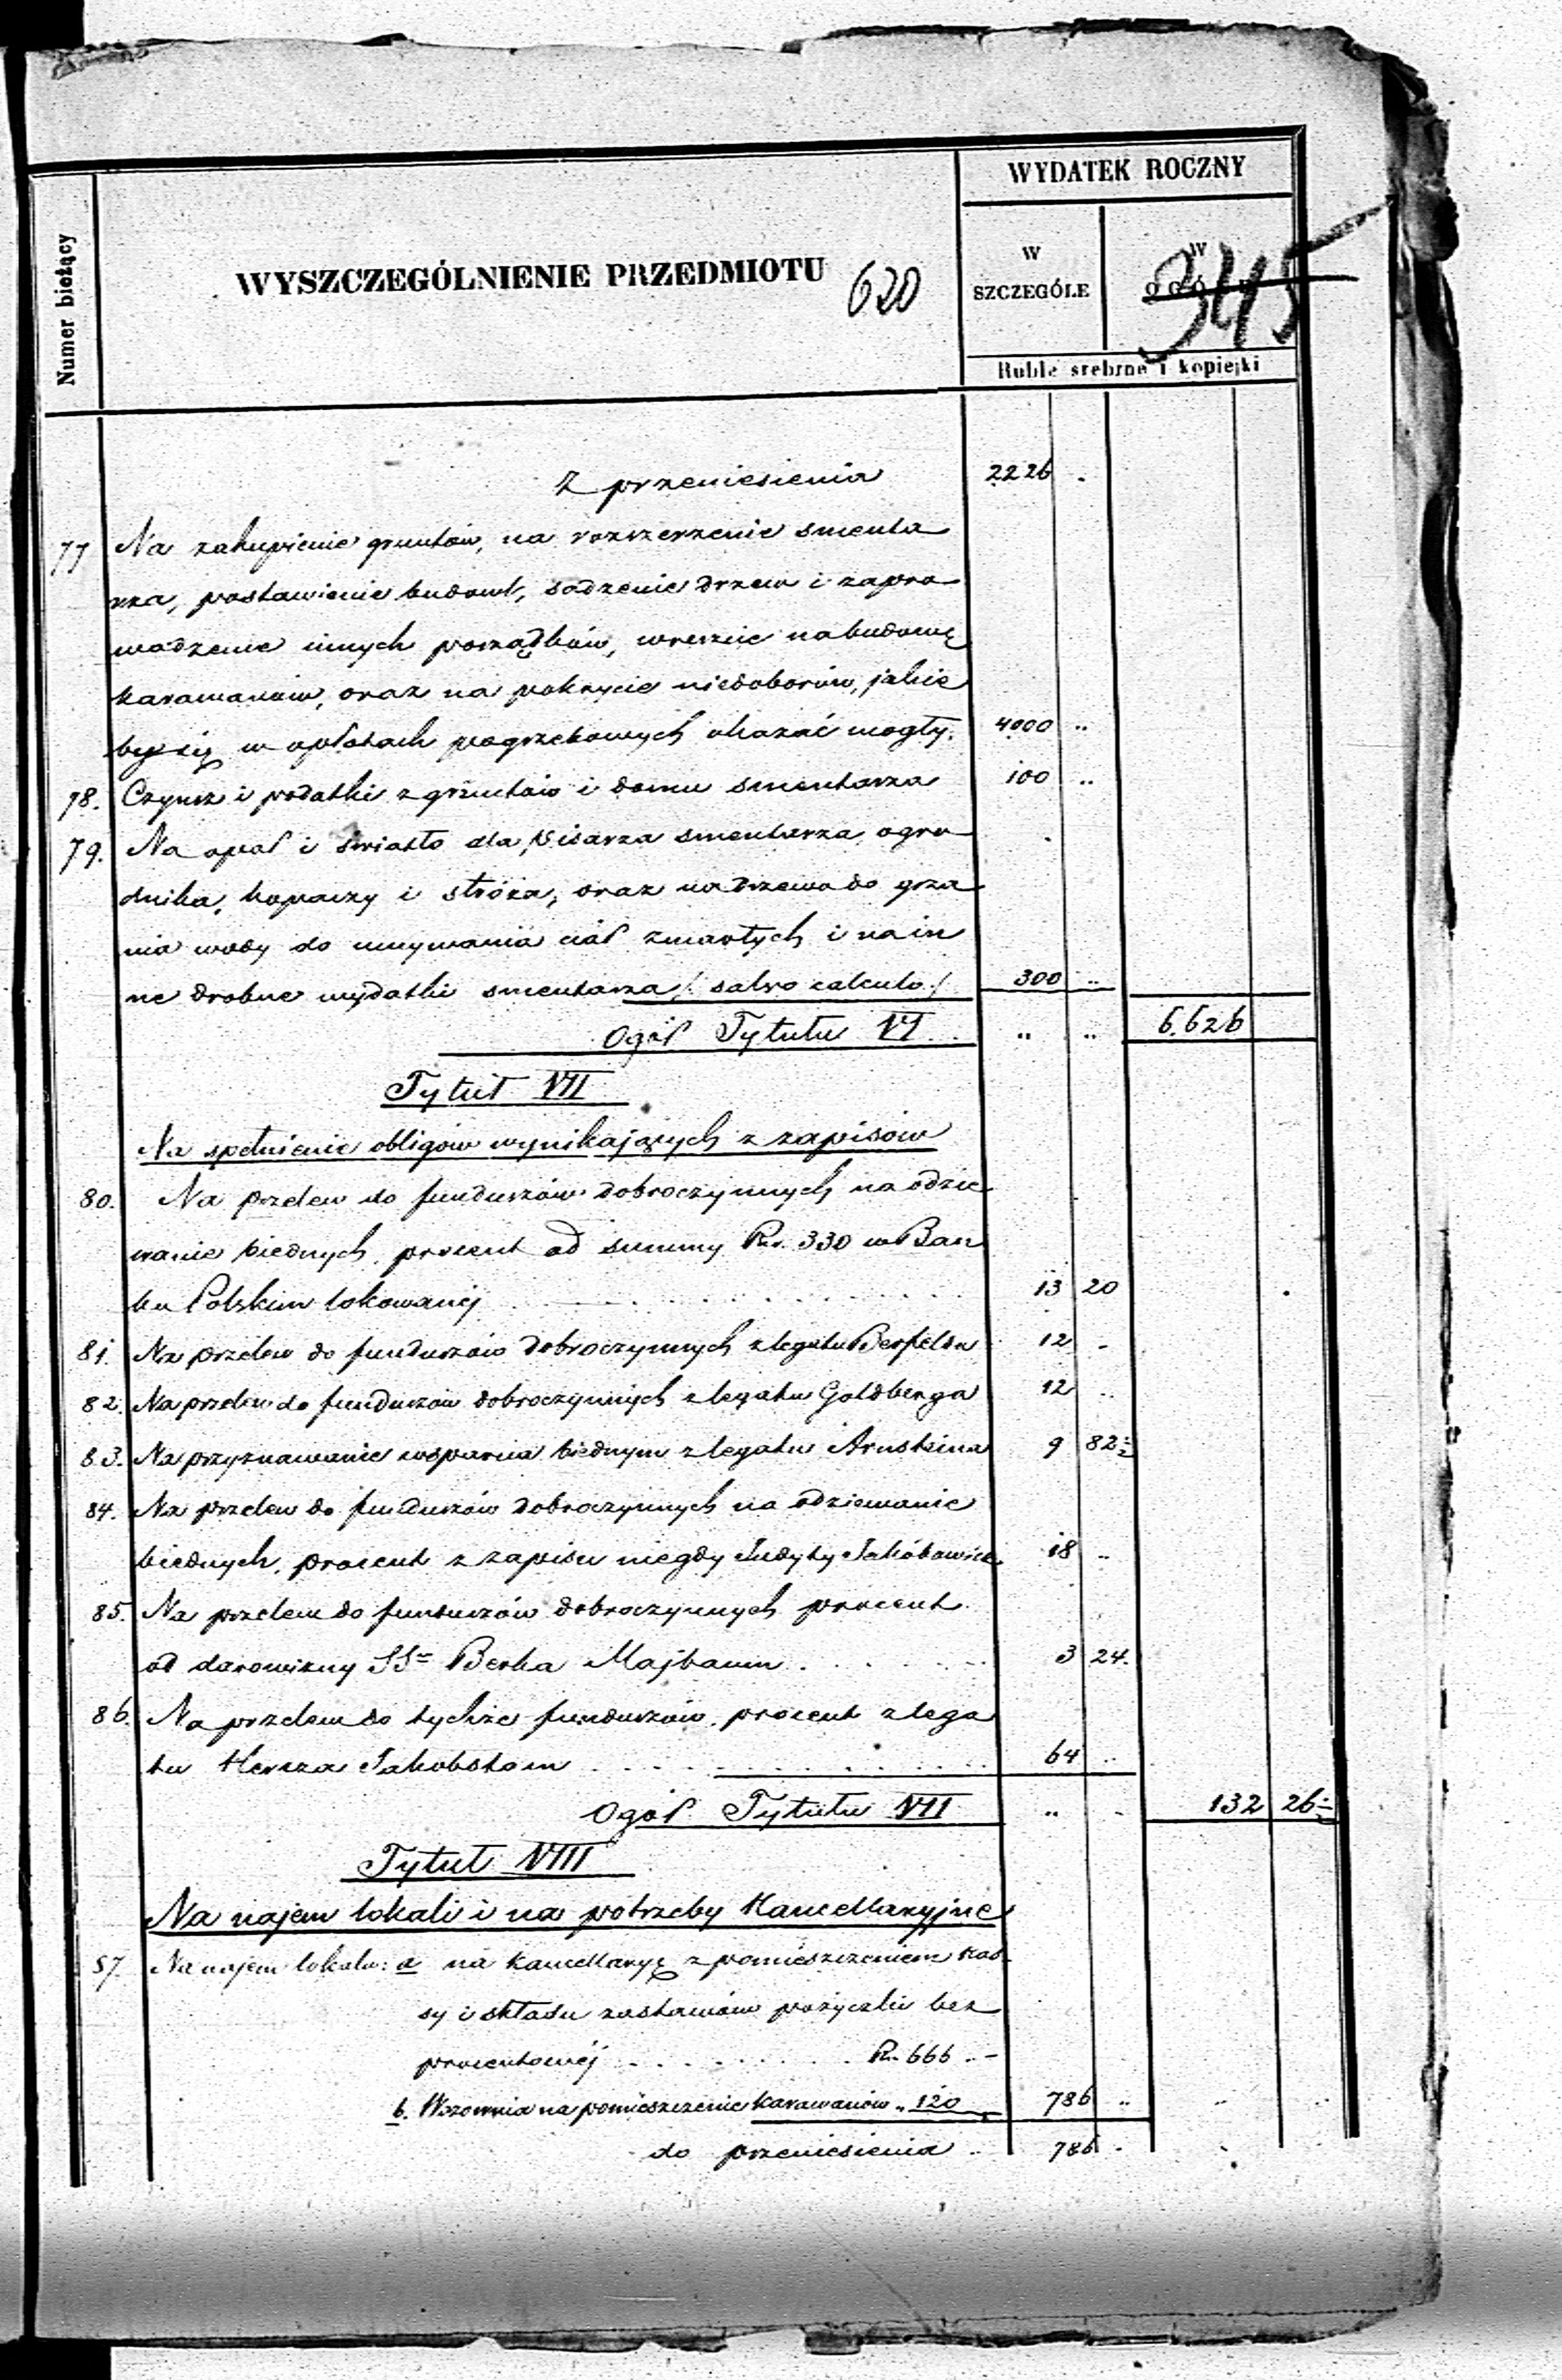 WYDATEK ROCZNY
Numer bieżący
WYSZCZEGÓLNIENIE PRZEDMIOTU 620
W SZCZEGÓLE
W OGÓLE 345
Ruble srebrne i kopiejki
Z przeniesienia 2226 .
77 Na zakupienie gruntów, na rozszerzenie smenta
rza, postawienie budowl, sadzenie drzew i zapro
wadzenie innych porządków, wreszcie na budowę
karawanów, oraz na pokrycie niedoborów, jakie
by się w opłatach pogrzebowych okazać mogły. 4000 ..
78. Czynsz i podatki z gruntów i domu smentarza 100 ..
79. Na opał i światło dla Pisarza smentarza, ogro
dnika, kopaczy i stróża, oraz na drzewo do grza
nia wody do umywania ciał zmarłych i na in
ne drobne wydatki smentarza /: salvo calculo :/ 300 ..
Ogół Tytułu VI .. .. 6.626
Tytuł VII
Na spełnienie obligów wynikających z zapisów
80. Na przelew do funduszów dobroczynnych na odzie
wanie biednych, procent od summy Rs. 330 w Ban
ku Polskim lokowanéj 13 20
81. Na przelew do funduszów dobroczynnych z legatu Berfelda 12 -
82. Na przelew do funduszów dobroczynnych z legatu Goldberga 12 ..
83. Na przyznawanie wsparcia biednym z legatu Arnsteina 9 82½
84. Na przelew do funduszów dobroczynnych na odziewanie
biednych, procent z zapisu niegdy Judyty Jakóbowicz 18 ..
85. Na przelew do funduszów dobroczynnych procent
od darowizny SS= Berka Majbaum 3 24.
86. Na przelew do tychże funduszów, procent z lega
tu Hersza Jakobstam 64 ..
Ogół Tytułu VII .. .. 132 26½
Tytuł VIII
Na najem lokali i na potrzeby Kancellaryjne
87. Na najem lokalu: a na Kancellaryę z pomieszczeniem Kas
sy i składu zastawów pożyczki bez
procentowéj Rs. 666 .. -
b. Wozownia na pomieszczenie karawanów „ 120 786 ..
do przeniesienia .. 786 .